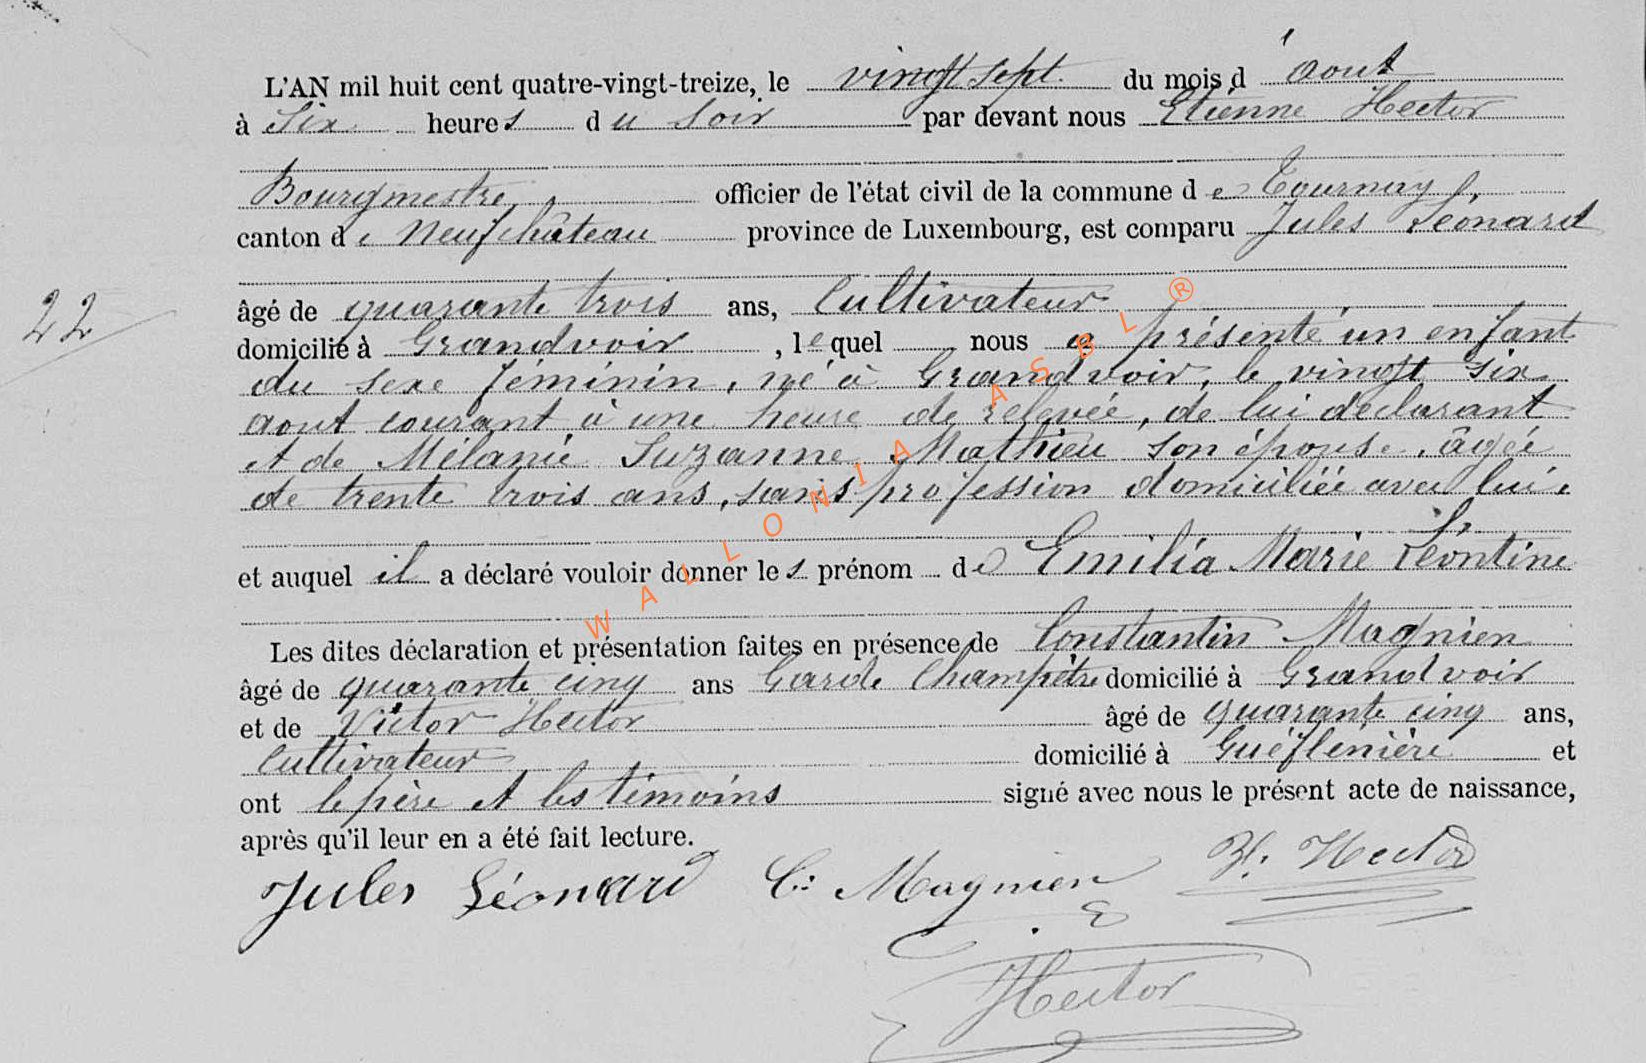 L'AN mil huit cent quatre-vingt-treize, le vingt sept du mois d'aout
à Six heures du soir par devant nous Etienne Hector
Bourgmestre officier de l'état civil de la commune de Tournay,
canton de Neufchâteau province de Luxembourg, est comparu Jules Léonard
âgé de quarante trois ans, Cultivateur
22
domicilié à Grandvoir, lequel nous a présenté un enfant
du sexe féminin, né à Grandvoir, le vingt six
aout courant à une heure de relevée, de lui déclarant
et de Mélanie Suzanne Mathieu son épouse, âgée
de trente trois ans, sans profession domiciliée avec lui,
et auquel il a déclaré vouloir donner les prénom de Emilia Marie Léontine
Les dites déclaration et présentation faites en présence de Constantin Magnien
âgé de quarante cinq ans Garde Champêtre domicilié à Grandvoir
et de Victor Hector âgé de quarante cinq ans,
Cultivateur domicilié à et
ont le père et les témoins signé avec nous le présent acte de naissance,
après qu'il leur en a été fait lecture.
Jules Léonard C. Magnien V. Hector
E. Hector
WALLONIA ASBL ®